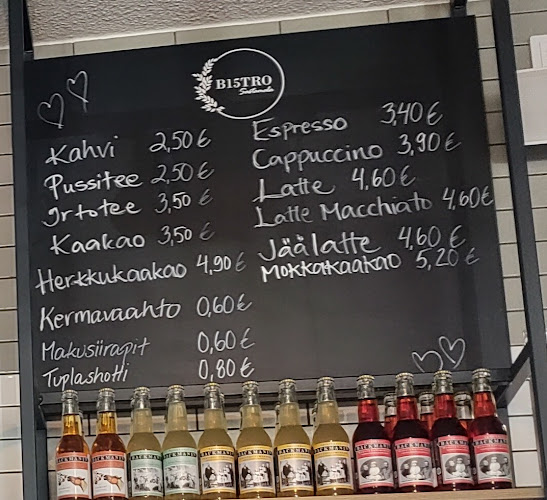 B15TRO
Kahvi 2,50 €
Pussitee 2,50 €
Irtotee 3,50 €
Kaakao 3,50 €
Herkkukaakao 4,90 €
Kermavaahto 0,60 €
Makusiirapit 0,60 €
Tuplashotti 0,80 €
Espresso 3,40 €
Cappuccino 3,90 €
Latte 4,60 €
Latte Macchiato 4,60 €
Jäälatte 4,60 €
Mokkakaakao 5,20 €